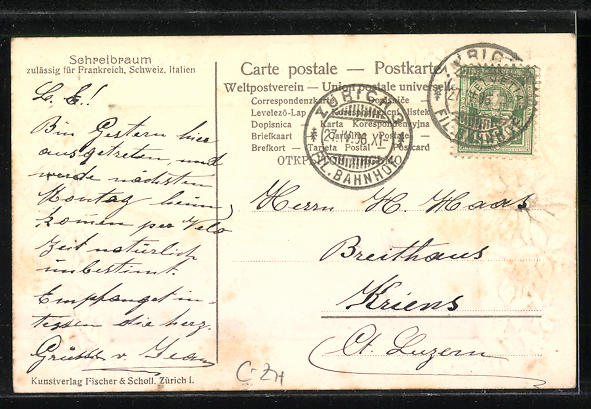 Schreibraum
zulässig für Frankreich, Schweiz, Italien
L. E.!
Bin Gestern hier
ausgetreten, und
werde nächsten
Montag heim
komen per Velo
Zeit natürlich
unbestimt.
Empfanget in-
tessen die herz.
Grüsse v. Jean
Kunstverlag Fischer & Scholl, Zürich I.
Carte postale — Postkarte
Weltpostverein — Union postale universelle
Correspondenzkarte
Levelező-Lap
Dopisnica — Karta Korespondencyjna
Briefkaart
Brefkort — Tarjeta Postal — Postcard
ZÜRICH
FIL. BAHNHOF
Herrn H. Haas
Breithaus
Kriens
Ct. Luzern
C-ZH